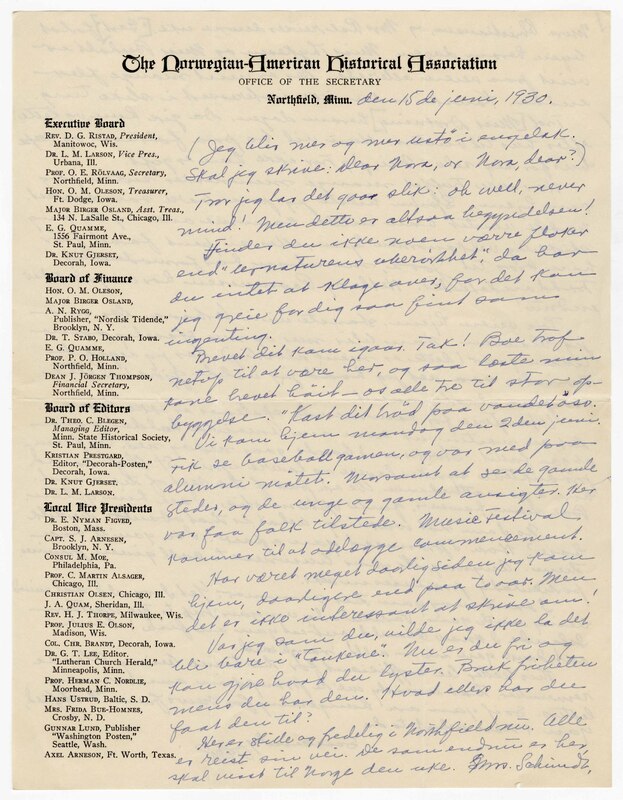 The Norwegian-American Historical Association
OFFICE OF THE SECRETARY
Northfield, Minn. den 15de juni, 1930.
Executive Board
REV. D. G. RISTAD, President,
Manitowoc, Wis.
DR. L. M. LARSON, Vice Pres.,
Urbana, Ill.
PROF. O. E. RÖLVAAG, Secretary,
Northfield, Minn.
HON. O. M. OLESON, Treasurer,
Ft. Dodge, Iowa.
MAJOR BIRGER OSLAND, Asst. Treas.,
134 N. LaSalle St., Chicago, Ill.
E. G. QUAMME,
1556 Fairmont Ave.,
St. Paul, Minn.
DR. KNUT GJERSET,
Decorah, Iowa.
Board of Finance
HON. O. M. OLESON,
MAJOR BIRGER OSLAND,
A. N. RYGG,
Publisher, "Nordisk Tidende,"
Brooklyn, N. Y.
DR. T. STABO, Decorah, Iowa.
E. G. QUAMME,
PROF. P. O. HOLLAND,
Northfield, Minn.
DEAN J. JÖRGEN THOMPSON,
Financial Secretary,
Northfield, Minn.
Board of Editors
DR. THEO. C. BLEGEN,
Managing Editor,
Minn. State Historical Society,
St. Paul, Minn.
KRISTIAN PRESTGARD,
Editor, "Decorah-Posten,"
Decorah, Iowa.
DR. KNUT GJERSET,
DR. L. M. LARSON.
Local Vice Presidents
DR. E. NYMAN FIGVED,
Boston, Mass.
CAPT. S. J. ARNESEN,
Brooklyn, N. Y.
CONSUL M. MOE,
Philadelphia, Pa.
PROF. C. MARTIN ALSAGER,
Chicago, Ill.
CHRISTIAN OLSEN, Chicago, Ill.
J. A. QUAM, Sheridan, Ill.
REV. H. J. THORPE, Milwaukee, Wis.
PROF. JULIUS E. OLSON,
Madison, Wis.
COL. CHR. BRANDT, Decorah, Iowa.
DR. G. T. LEE, Editor,
"Lutheran Church Herald,"
Minneapolis, Minn.
PROF. HERMAN C. NORDLIE,
Moorhead, Minn.
HANS USTRUD, Baltic, S. D.
MRS. FRIDA BUE-HOMNES,
Crosby, N. D.
GUNNAR LUND, Publisher
"Washington Posten,"
Seattle, Wash.
AXEL ARNESON, Ft. Worth, Texas.
(Jeg blir mer og mer ustø i engelsk.
Skal jeg skrive: Dear Nora, or Nora dear?)
Tror jeg lar det gaa slik: oh well, never
mind! Men dette er altsaa begyndelsen!
Finder du ikke noen værre floker
end det, da har
du intet at klage over, for det kan
jeg greie for dig saa fint som
ingenting.
Brevet dit kom igaar. Tak! Boe trof
netop til at være her, og saa læste min
kone brevet høit – os alle tre til stor op-
byggelse. "Kast dit brød paa vandet" osv.
Vi kom hjem mandag den 2den juni.
Fik se baseballgamen, og var med paa
alumni møtet. Morsomt at se de gamle
steder, og de unge og gamle ansigter. Her
var faa folk tilstede. Music Festival
kommer til at ødelægge commencement.
Har været meget daarlig siden jeg kom
hjem, daarligere end paa to aar. Men
det er ikke interessant at skrive om!
Var jeg som du, vilde jeg ikke la det
bli bare i "tankene". Nu er du fri og
kan gjøre hvad du lyster. Bruk friheten
mens du har den. Hvad ellers har du
faat den til?
Her er stille og fredelig i Northfield nu. Alle
er reist sin vei. De som endnu er her,
skal visst til Norge den uke. Mrs. Schmidt,